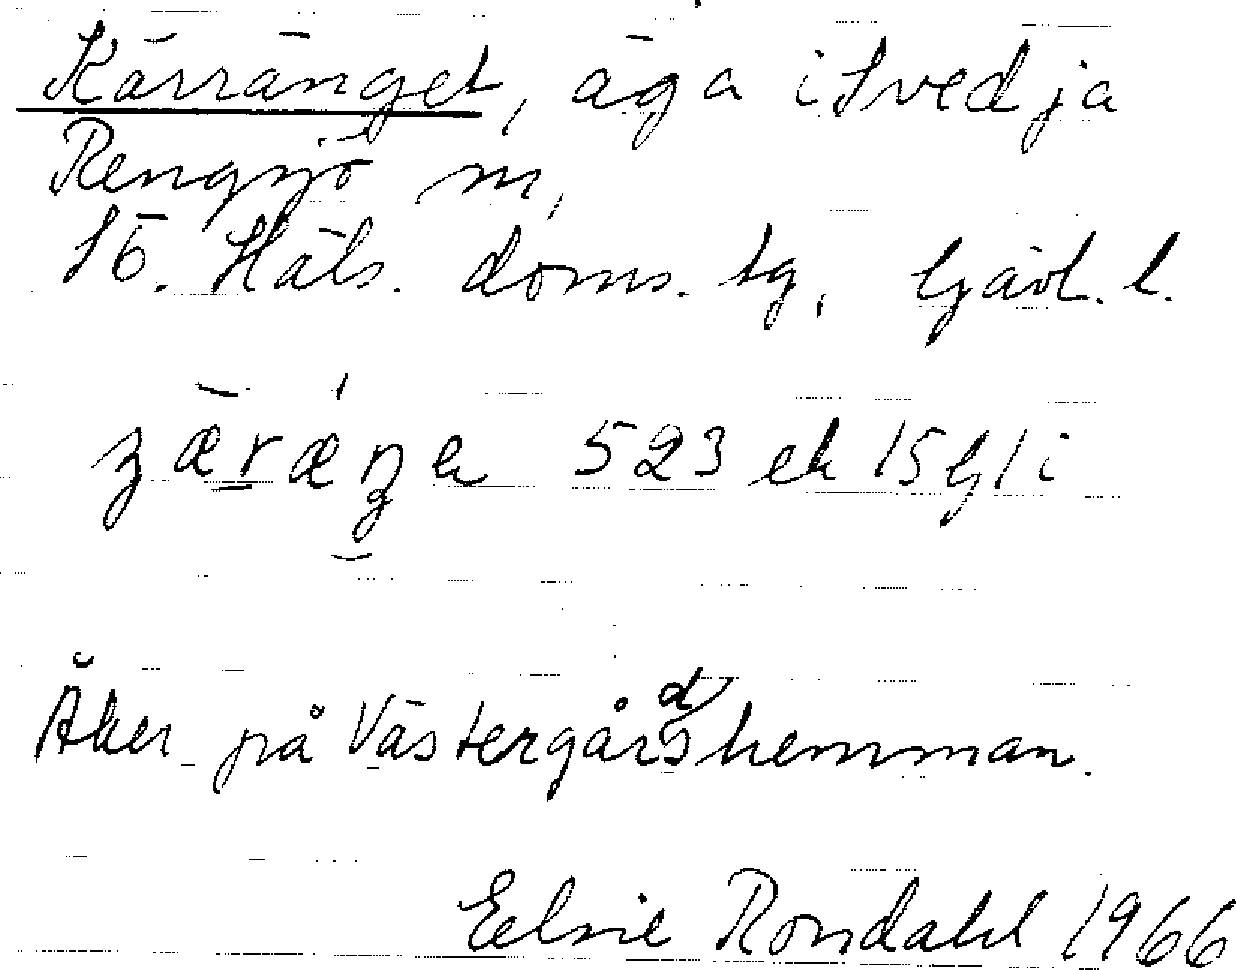 Kärränget, äga i Svedja
Rengsjö sn,
Sö. Häls. doms. tg, Gävl. l.
523 ek 15 G 1 i
Åker på Västergårdshemman.
Elsie Rondahl 1966